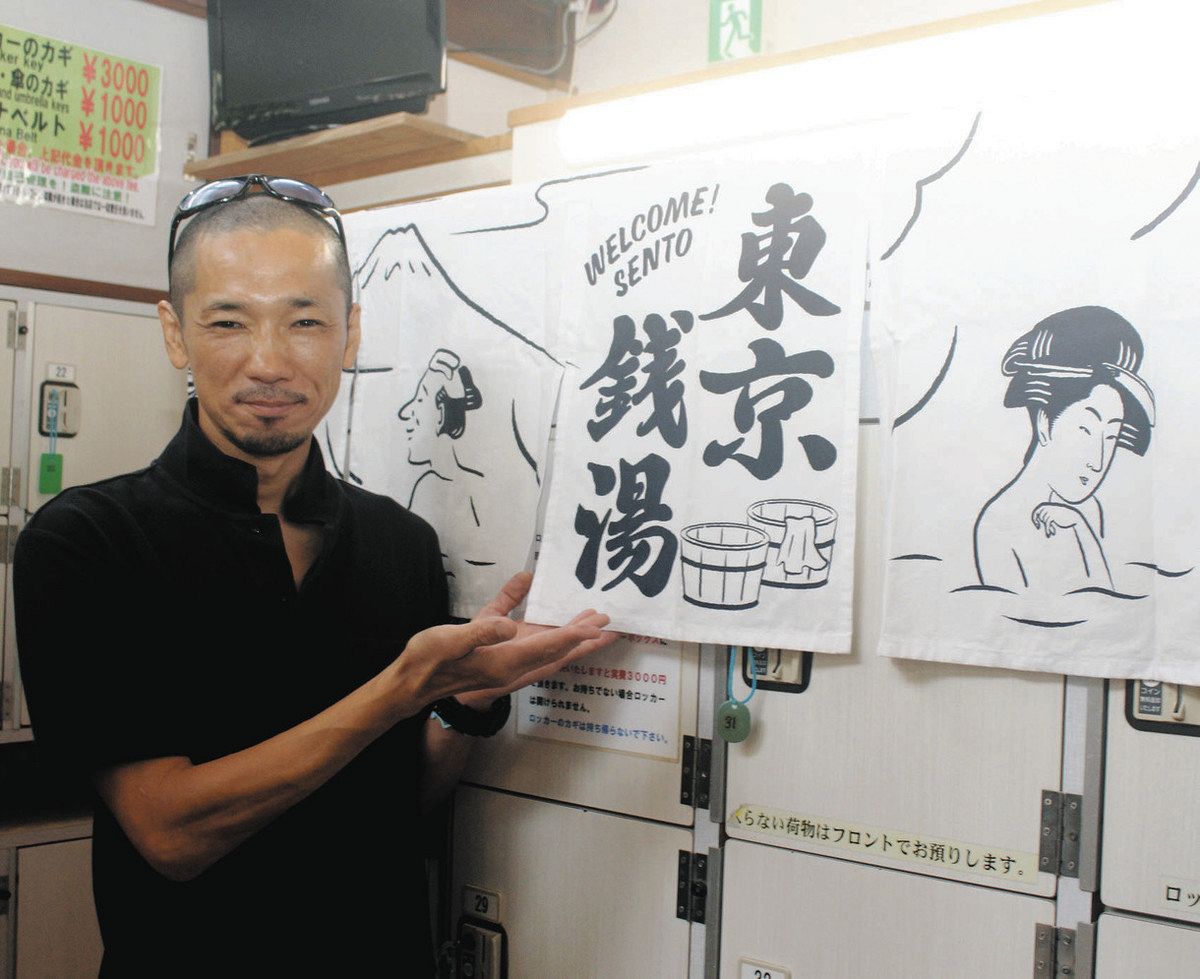 ーのカギ ¥3000
ker key
・傘のカギ ¥1000
and umbrella keys
ナベルト ¥1000
na Belt
上記代金を頂きます。
will be charged the above fee.
盗難に注意！
WELCOME!
SENTO
東京
銭湯
22
いたしますと実費3000円
頂きます。お持ちでない場合ロッカー
は開けられません。
ロッカーのカギは持ち帰らないで下さい。
31
コイン
らない荷物はフロントでお預りします。
29
30
ロッ